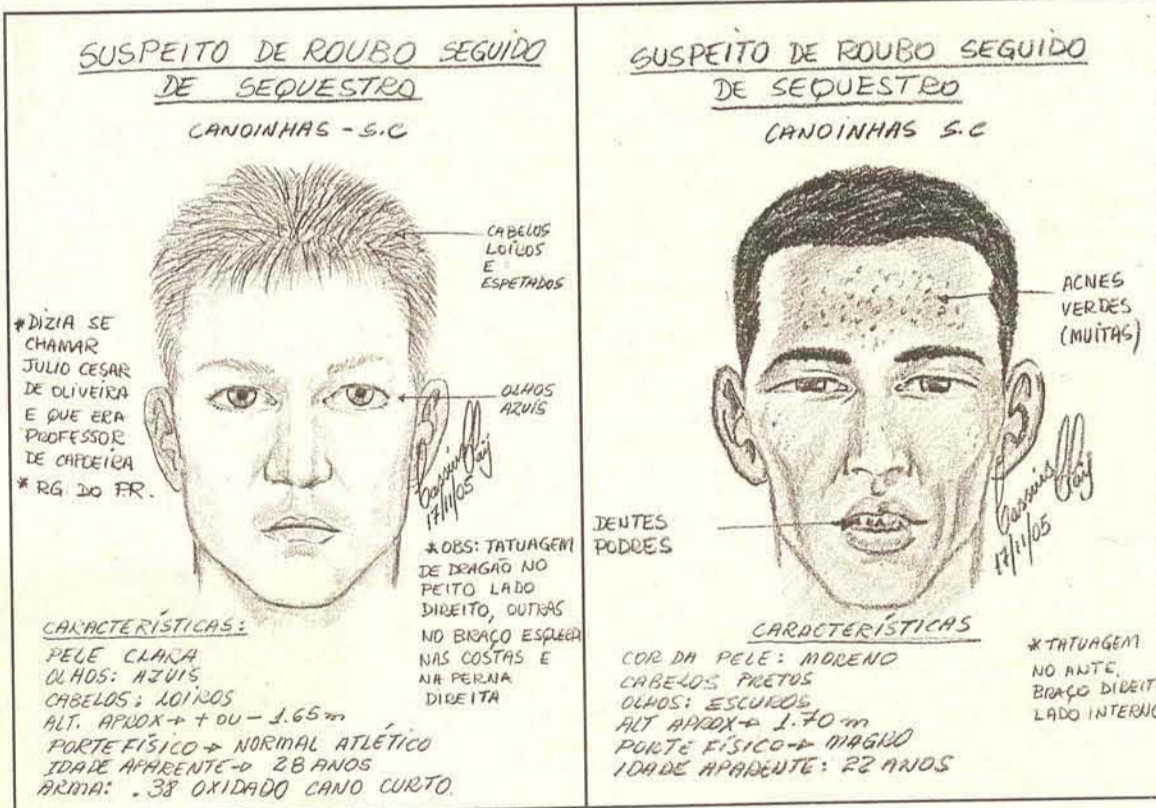 SUSPEITO DE ROUBO SEGUIDO
DE SEQUESTRO
CANOINHAS - S.C
CABELOS
LOIROS
E
ESPETADOS
*DIZIA SE
CHAMAR
JULIO CESAR
DE OLIVEIRA
E QUE ERA
PROFESSOR
DE CAPOEIRA
* RG. DO PR.
OLHOS
AZUIS
17/11/05
*OBS: TATUAGEM
DE DRAGÃO NO
PEITO LADO
DIREITO, OUTRAS
NO BRAÇO
NAS COSTAS E
NA PERNA
DIREITA
CARACTERÍSTICAS:
PELE CLARA
OLHOS: AZUIS
CABELOS: LOIROS
ALT. APROX → + OU - 1.65m
PORTE FÍSICO → NORMAL ATLÉTICO
IDADE APARENTE → 28 ANOS
ARMA: .38 OXIDADO CANO CURTO.
SUSPEITO DE ROUBO SEGUIDO
DE SEQUESTRO
CANOINHAS S.C
ACNES
VERDES
(MUITAS)
DENTES
PODRES
17/11/05
CARACTERÍSTICAS
COR DA PELE: MORENO
CABELOS PRETOS
OLHOS: ESCUROS
ALT APROX → 1.70m
PORTE FÍSICO → MAGRO
IDADE APARENTE: 22 ANOS
*TATUAGEM
NO ANTE,
BRAÇO DIREIT
LADO INTERNO